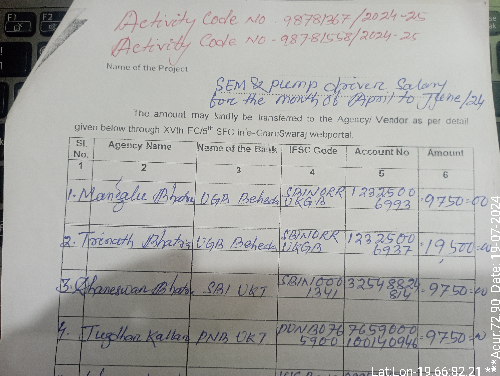 Activity Code No - 98781267/2024-25
Activity Code No - 98781558/2024-25
Name of the Project
SEM & pump driver Salary
for the month of April to June/24
The amount may kindly be transferred to the Agency/ Vendor as per detail
given below through XVth FC/5th SFC in e-GramSwaraj webportal.
Sl. No. Agency Name Name of the Bank IFSC Code Account No Amount
1 2 3 4 5 6
1. Mangalu Bhatra UGB Beheda SBIN0RRUKGB 12325006993 9750=00
2. Trinath Bhatra UGB Beheda SBIN0RRUKGB 12325006937 19,500=00
3. Dhaneswar Bhatra SBI UKT SBIN0001341 32548824814 9750=00
4. Kattan PNB UKT PUNB0765900 7659000100140946 9750=00
LatLon-19.66:82.21 ***Acur:72.90 Date:19-07-2024